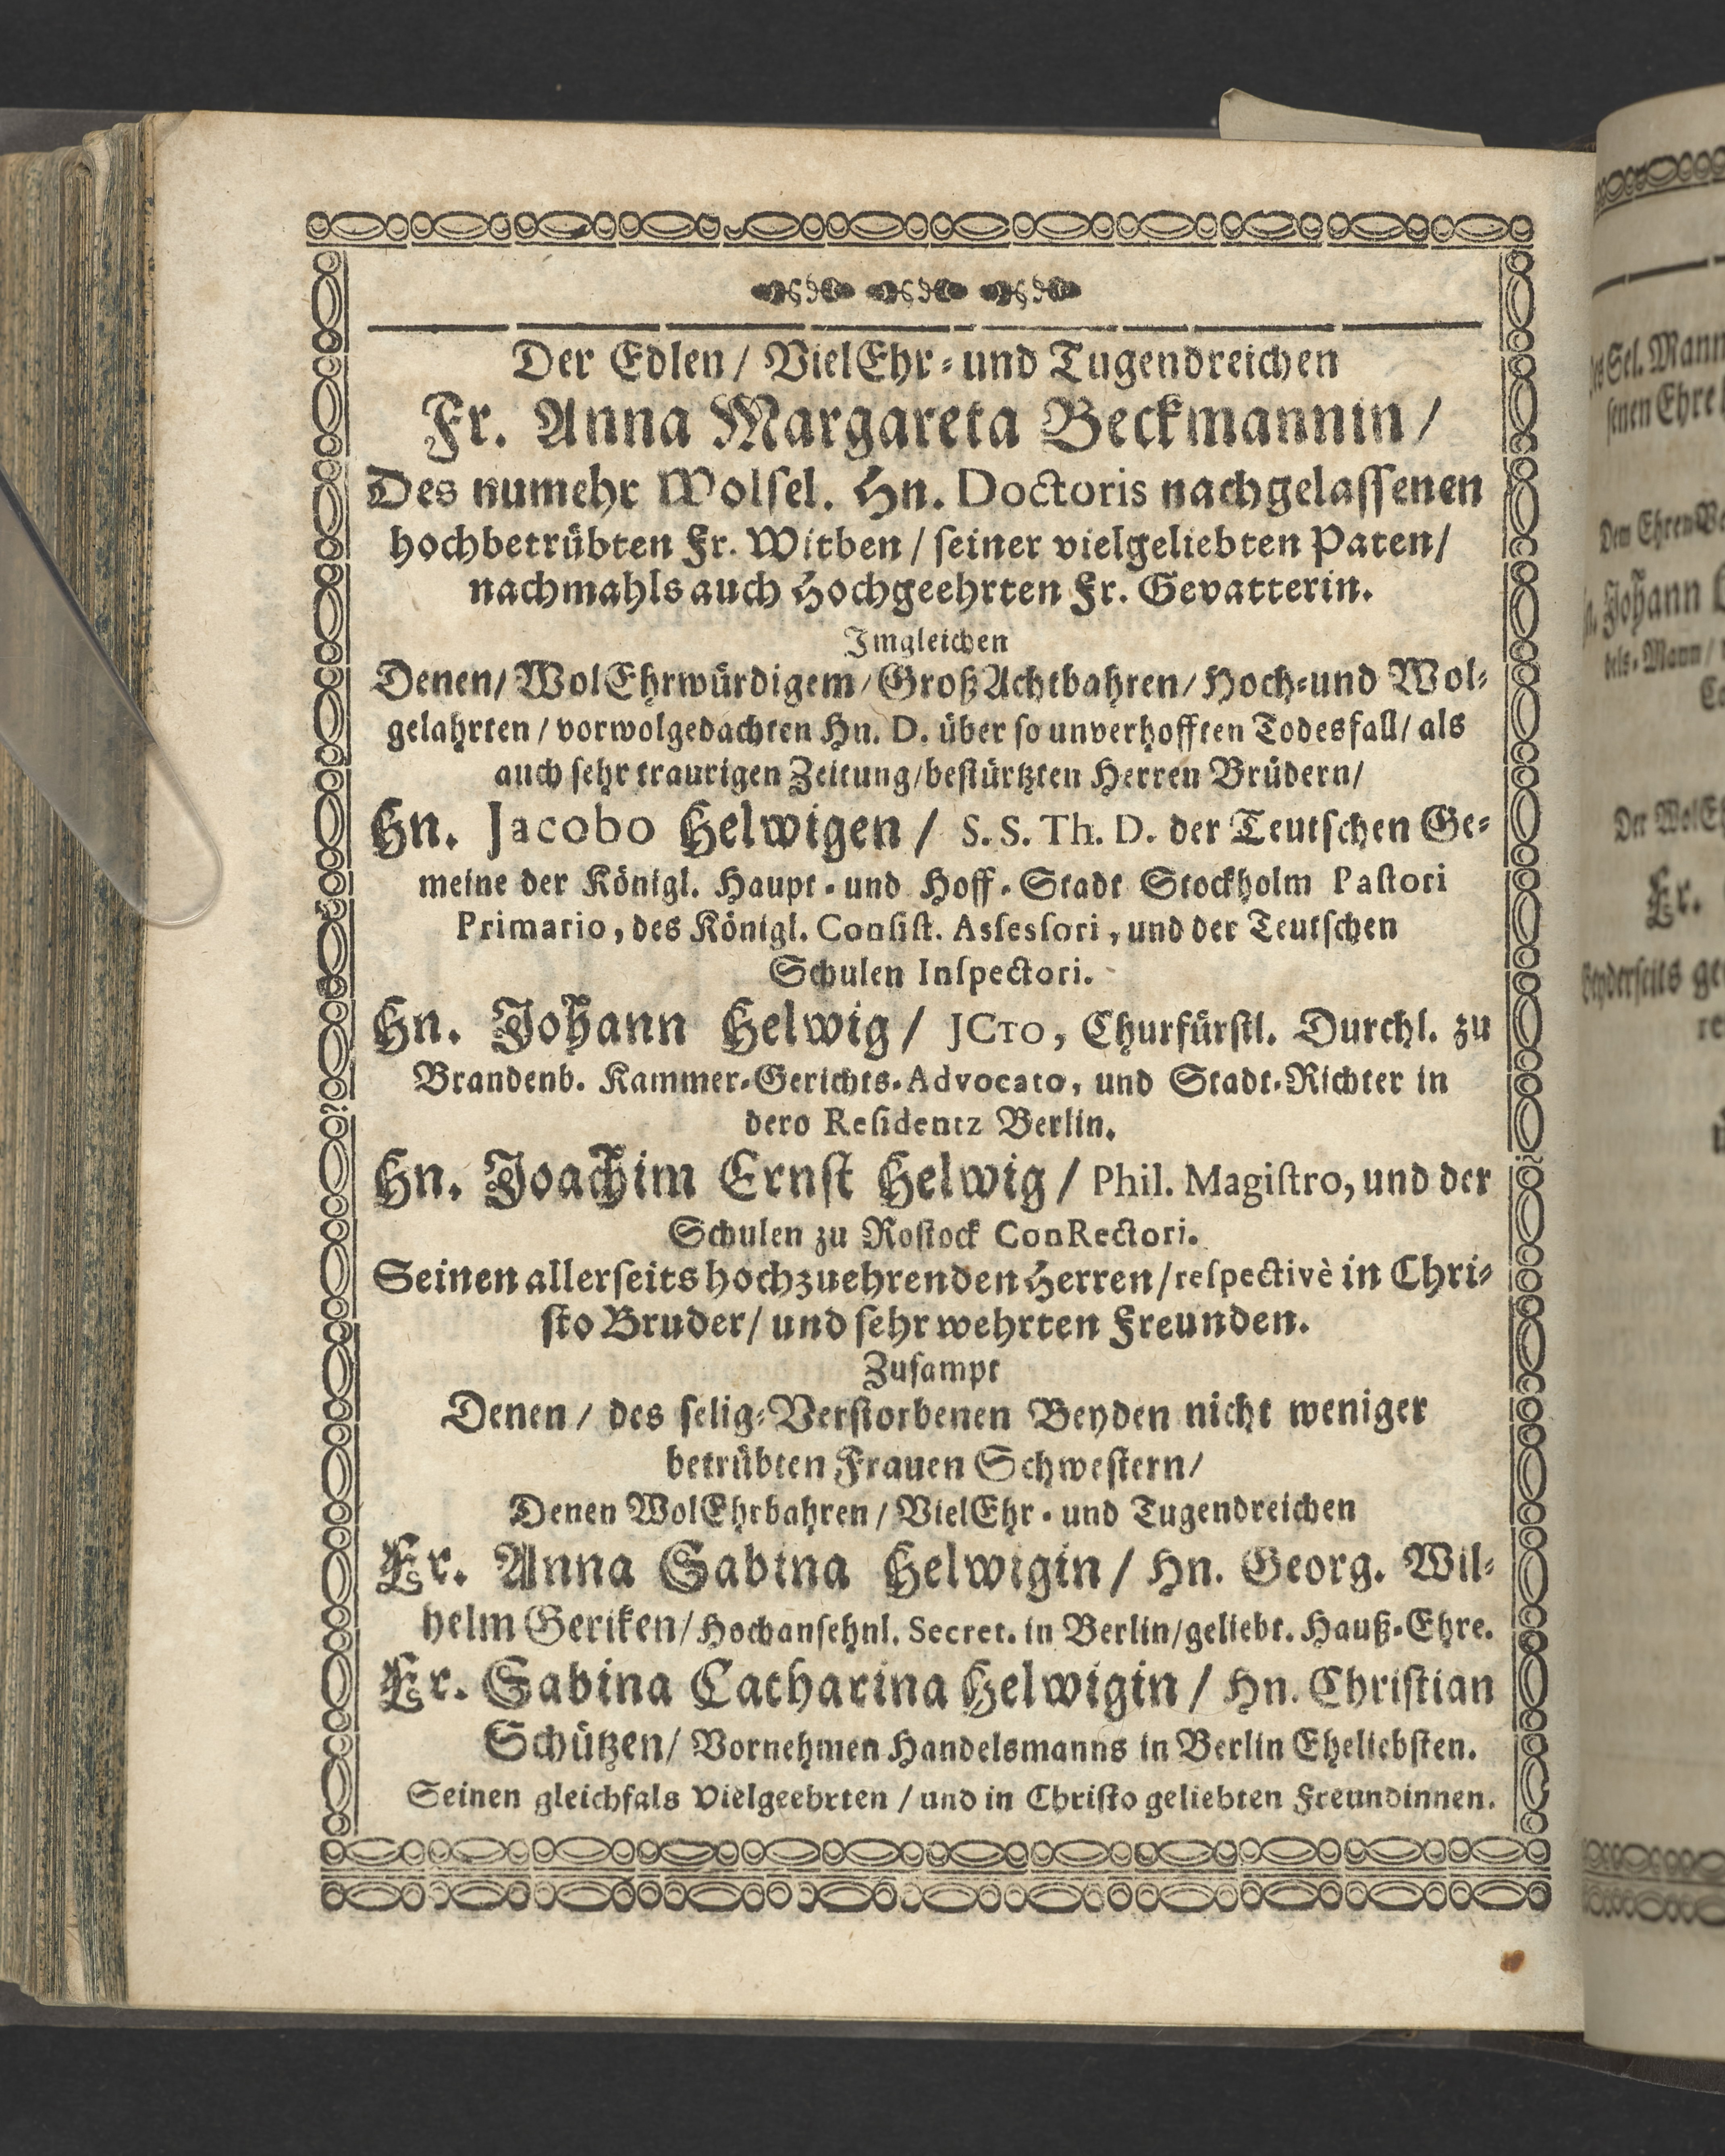 Der Edlen / VielEhr- und Tugendreichen
Fr. Anna Margareta Beckmannin /
Des numehr Wolsel. Hn. Doctoris nachgelassenen
hochbetrübten Fr. Witben / seiner vielgeliebten Paten /
nachmahls auch Hochgeehrten Fr. Gevatterin.
Imgleichen
Denen / WolEhrwürdigem / GroßAchtbahren / Hoch- und Wol-
gelahrten / vorwolgedachten Hn. D. über so unverhofften Todesfall / als
auch sehr traurigen Zeitung / bestürtzten Herren Brüdern /
Hn. Jacobo Helwigen / S. S. Th. D. der Teutschen Ge-
meine der Königl. Haupt- und Hoff-Stadt Stockholm Pastori
Primario, des Königl. Consist. Assessori, und der Teutschen
Schulen Inspectori.
Hn. Johann Helwig / JCTO, Churfürstl. Durchl. zu
Brandenb. Kammer-Gerichts-Advocato, und Stadt-Richter in
dero Residentz Berlin.
Hn. Joachim Ernst Helwig / Phil. Magistro, und der
Schulen zu Rostock ConRectori.
Seinen allerseits hochzuehrenden Herren / respectivè in Chri-
sto Bruder / und sehr wehrten Freunden.
Zusampt
Denen / des selig-Verstorbenen Beyden nicht weniger
betrübten Frauen Schwestern /
Denen WolEhrbahren / VielEhr- und Tugendreichen
Fr. Anna Sabina Helwigin / Hn. Georg. Wil-
helm Geriken / Hochansehnl. Secret. in Berlin / geliebt. Hauß-Ehre.
Fr. Sabina Catharina Helwigin / Hn. Christian
Schützen / Vornehmen Handelsmanns in Berlin Eheliebsten.
Seinen gleichfals vielgeehrten / und in Christo geliebten Freundinnen.
Sel. Mann
senen Ehre
Dem
Johann
dels-Mann /
Der
Fr.
Beyderseits